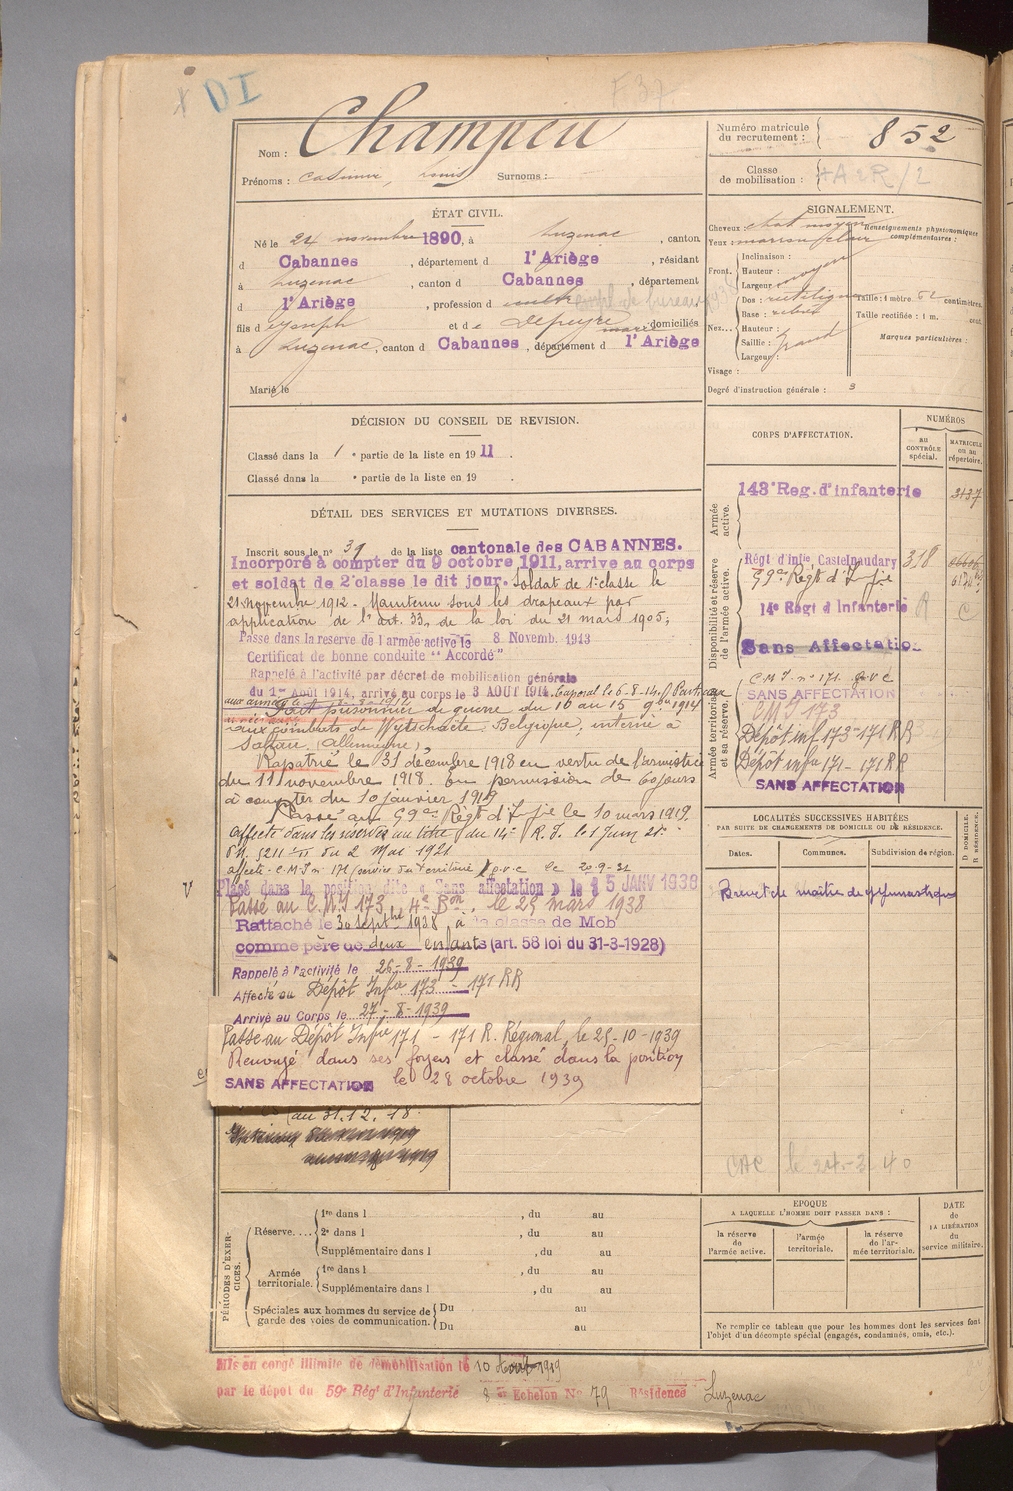 X DI
F 37
Nom : Champeu
Prénoms : Casimir, Louis Surnoms :
Numéro matricule du recrutement : 852
Classe de mobilisation : /2
ÉTAT CIVIL.
Né le 24 novembre 1890, à Luzenac, canton
d Cabannes, département d l'Ariège, résidant
à Luzenac, canton d Cabannes, département
d l'Ariège, profession d
fils d Joseph et de Depeyre Marie domiciliés
à Luzenac, canton d Cabannes, département d l'Ariège
Marié le
SIGNALEMENT.
Cheveux chat moyen
Yeux marron clair
Renseignements physionomiques complémentaires :
Front. Inclinaison :
Hauteur :
Largeur : moyen
Nez... Dos : rectiligne
Base :
Hauteur :
Saillie : grand
Largeur :
Visage :
Taille : 1 mètre 62 centimètres.
Taille rectifiée : 1 m. cent.
Marques particulières :
Degré d'instruction générale : 3
DÉCISION DU CONSEIL DE REVISION.
Classé dans la 1e partie de la liste en 1911.
Classé dans la e partie de la liste en 19 .
CORPS D'AFFECTATION.
NUMÉROS
au CONTRÔLE spécial.
MATRICULE ou au répertoire.
Armée active.
143e Reg. d'infanterie 3137
Disponibilité et réserve de l'armée active.
Régt d'infie, Castelnaudary 318
59e Régt d'Infie
14e Régt d'Infanterie
Sans Affectation
Armée territoriale et sa réserve.
C.M.I. n° 171 g.v.c
SANS AFFECTATION
CMI 173
Dépôt inf 173-171 RR
Dépôt infie 171-171 RR
SANS AFFECTATION
DÉTAIL DES SERVICES ET MUTATIONS DIVERSES.
Inscrit sous le n° 39 de la liste cantonale des CABANNES.
Incorporé à compter du 9 octobre 1911, arrive au corps
et soldat de 2e classe le dit jour. Soldat de 1e classe le
21 novembre 1912. Maintenu sous les drapeaux par
application de l'art. 33, de la loi du 21 mars 1905;
Passé dans la reserve de l'armée active le 8 Novemb. 1913
Certificat de bonne conduite "Accordé"
Rappelé à l'activité par décret de mobilisation générale
du 1er Août 1914, arrivé au corps le 3 AOUT 1914. Caporal le 6-8-14. Parti aux
aux armées le
Fait prisonnier de guerre du 10 au 15 9bre 1914
aux combats de Wytschaëte Belgique, interné à
(Allemagne),
Rapatrié le 31 décembre 1918 en vertu de l'armistice
du 11 novembre 1918. En permission de 60 jours
à compter du 10 janvier 1919
Passé au 59e Régt d'Infie le 10 mars 1919.
affecté dans les réserves au titre du 14e R.I. le 1 Juin 21.
5211 du 2 Mai 1921
affecté C.M.I. n° 171 (service du territoire) g.v.c le 20-9-31
Placé dans la position dite « Sans affectation » le 15 JANV 1938
Passé au C.M.I 173, 4e Bon, le 25 mars 1938
Rattaché le 30 septbre 1938, à la classe de Mob
comme père de deux enfants (art. 58 loi du 31-3-1928)
Rappelé à l'activité le 26-8-1939
Affecté au Dépôt Infie 173 - 171 RR
Arrivé au Corps le 27-8-1939
Passé au Dépôt Infie 171 - 171 R. Régional, le 25-10-1939
Renvoyé dans ses foyers et classé dans la position
SANS AFFECTATION le 28 octobre 1939
au 31.12.18.
LOCALITÉS SUCCESSIVES HABITÉES
PAR SUITE DE CHANGEMENTS DE DOMICILE OU DE RÉSIDENCE.
Dates.
Communes.
Subdivision de région.
D. DOMICILE. R. RÉSIDENCE.
Brevet de maître de gymnastique
CAC le 3 40
PÉRIODES D'EXERCICES.
Réserve....
1re dans l , du au
2e dans l , du au
Supplémentaire dans l , du au
Armée territoriale.
1re dans l , du au
Supplémentaire dans l , du au
Spéciales aux hommes du service de garde des voies de communication.
Du au
Du au
EPOQUE
A LAQUELLE L'HOMME DOIT PASSER DANS :
la réserve de l'armée active.
l'armée territoriale.
la réserve de l'armée territoriale.
DATE de LA LIBÉRATION du service militaire.
Ne remplir ce tableau que pour les hommes dont les services font l'objet d'un décompte spécial (engagés, condamnés, omis, etc.).
Mis en congé illimité de démobilisation le 10 Août 1919
par le dépôt du 59e Régt d'Infanterie 8e Echelon No 79 Résidence Luzenac